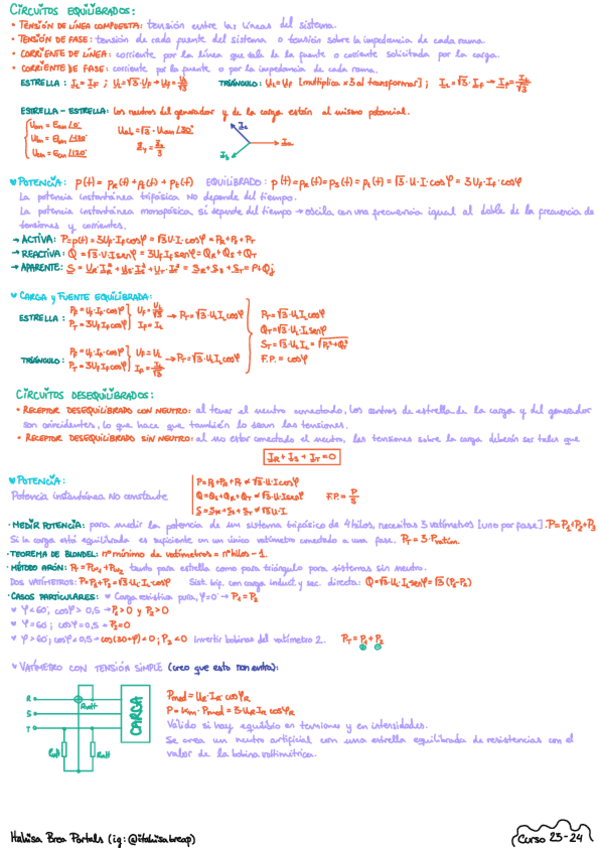 CIRCUITOS EQUILIBRADOS:
• TENSIÓN DE LÍNEA COMPUESTA: tensión entre las líneas del sistema.
• TENSIÓN DE FASE: tensión de cada fuente del sistema o tensión sobre la impedancia de cada rama.
• CORRIENTE DE LÍNEA: corriente por la línea que sale de la fuente o corriente solicitada por la carga.
• CORRIENTE DE FASE: corriente por la fuente o por la impedancia de cada rama.
ESTRELLA: IL = IF ; UL=√3·UF → UF = UL/√3 TRIÁNGULO: UL = UF [multiplica ×3 al transformar] ; IL = √3·IF → IF = IL/√3
ESTRELLA - ESTRELLA: los neutros del generador y de la carga están al mismo potencial.
POTENCIA: p(t) = pR(t) + pS(t) + pT(t) EQUILIBRADO: p(t) = pR(t) = pS(t) = pT(t) = √3·U·I·cosφ = 3UF·IF·cosφ
La potencia instantánea trifásica NO depende del tiempo.
La potencia instantánea monofásica sí depende del tiempo → oscila con una frecuencia igual al doble de la frecuencia de
tensiones y corrientes.
→ ACTIVA: P=p(t) = 3UF·IF cosφ = √3U·I·cosφ = PR+PS+PT
→ REACTIVA: Q = √3·U·I senφ = 3UF·IF senφ = QR+QS+QT
→ APARENTE: S = UR·IR* + US·IS* + UT·IT* = SR+SS+ST = P+Qj
CARGA y FUENTE EQUILIBRADA:
ESTRELLA: PF = UF·IF·cosφ UF = UL/√3 → PT = √3·UL·IL cosφ PT = √3·UL·IL cosφ
PT = 3UF·IF cosφ IF = IL QT = √3·UL·IL senφ
ST = √3·UL·IL = √PT²+QT²
TRIÁNGULO: PF = UF·IF·cosφ UF = UL → PT = √3·UL·IL cosφ F.P. = cosφ
PT = 3UF·IF cosφ IF = IL/√3
CIRCUITOS DESEQUILIBRADOS:
• RECEPTOR DESEQUILIBRADO CON NEUTRO: al tener el neutro conectado, los centros de estrella de la carga y del generador
son coincidentes, lo que hace que también lo sean las tensiones.
• RECEPTOR DESEQUILIBRADO SIN NEUTRO: al no estar conectado el neutro, las tensiones sobre la carga deberán ser tales que
IR + IS + IT = 0
POTENCIA: P = PR+PS+PT ≠ √3·U·I cosφ
Potencia instantánea NO constante Q = QR+QS+QT ≠ √3·U·I senφ F.P. = P/S
S = SR+SS+ST ≠ √3·U·I
• MEDIR POTENCIA: para medir la potencia de un sistema trifásico de 4 hilos, necesitas 3 vatímetros [uno por fase]. P=P1+P2+P3
Si la carga está equilibrada es suficiente con un único vatímetro conectado a una fase. PT = 3·Pvatím.
• TEOREMA DE BLONDEL: nº mínimo de vatímetros = nº hilos - 1.
• MÉTODO ARÓN: PT = PW1 + PW2 tanto para estrella como para triángulo para sistemas sin neutro.
DOS VATÍMETROS: P=P1+P2=√3·UL·IL·cosφ Sist. trif. con carga induct. y sec. directa: Q=√3·UL·IL senφ = √3 (P1-P2)
• CASOS PARTICULARES: Carga resistiva pura, φ=0° → P1 = P2
φ < 60°, cosφ > 0,5 → P1 > 0 y P2 > 0
φ = 60°; cosφ = 0,5 → P2=0
φ > 60°; cosφ < 0,5 → cos(30+φ) < 0 ; P2 < 0 Invertir bobina del vatímetro 2. PT = P1 + P2
VATÍMETRO CON TENSIÓN SIMPLE (creo que esto non entra):
R
S
T
CARGA
Pmed = UR·IR cosφR
P = Km · Pmed = 3·UR IR cosφR
Válido si hay equilibrio en tensiones y en intensidades.
Se crea un neutro artificial con una estrella equilibrada de resistencias con el
valor de la bobina voltimétrica.
Itahisa Brea Portals (ig: @itahisabreap)
Curso 23-24